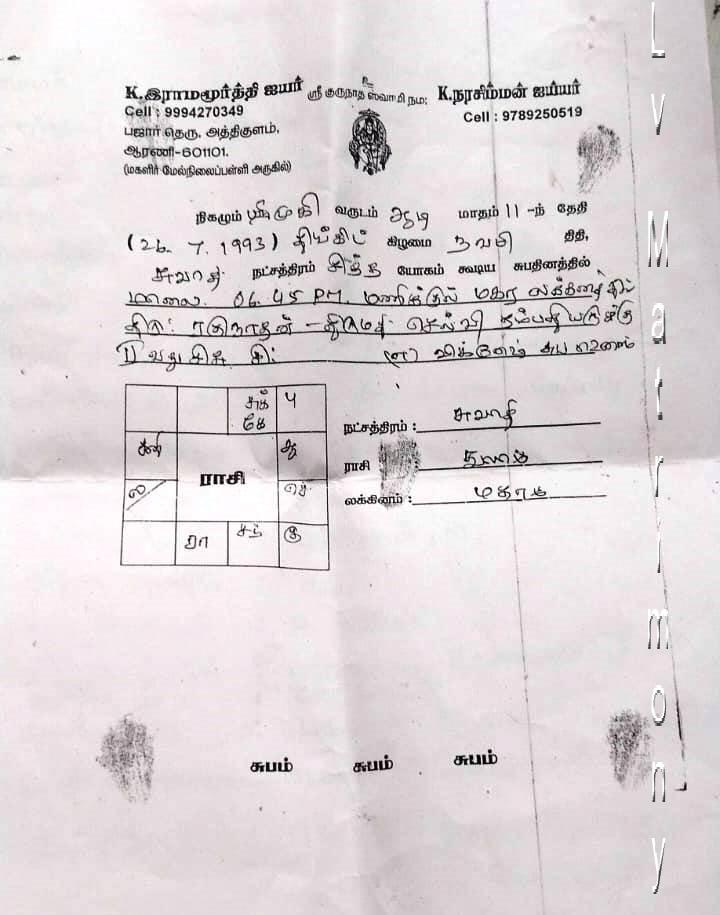 K.இராமமூர்த்தி ஐயர்
ஸ்ரீ குருநாத ஸ்வாமி நம:
K.நரசிம்மன் ஐய்யர்
Cell : 9994270349
Cell : 9789250519
பஜார் தெரு, அத்திகுளம்,
ஆரணி-601101.
(மகளிர் மேல்நிலைப்பள்ளி அருகில்)
நிகழும் ஸ்ரீமுகி வருடம் ஆடி மாதம் 11 -ந் தேதி
(26. 7. 1993) திங்கட் கிழமை நவமி திதி,
சுவாதி நட்சத்திரம் சித்த யோகம் கூடிய சுபதினத்தில்
மாலை. 06.45 PM. மணிக்குள் மகர லக்கினத்தில்
திரு: ரகுநாதன் - திருமதி: செல்வி தம்பதியருக்கு
II வது சி: (எ) விக்னேஷ் சுப ஜெனனம்
சுக் கே
பு
சனி
ராசி
ஆ
ல
செ
ரா
சந்
கு
நட்சத்திரம் : சுவாதி
ராசி துலாம்
லக்கினம் : மகரம்
சுபம் சுபம் சுபம்
Lv Matrimony